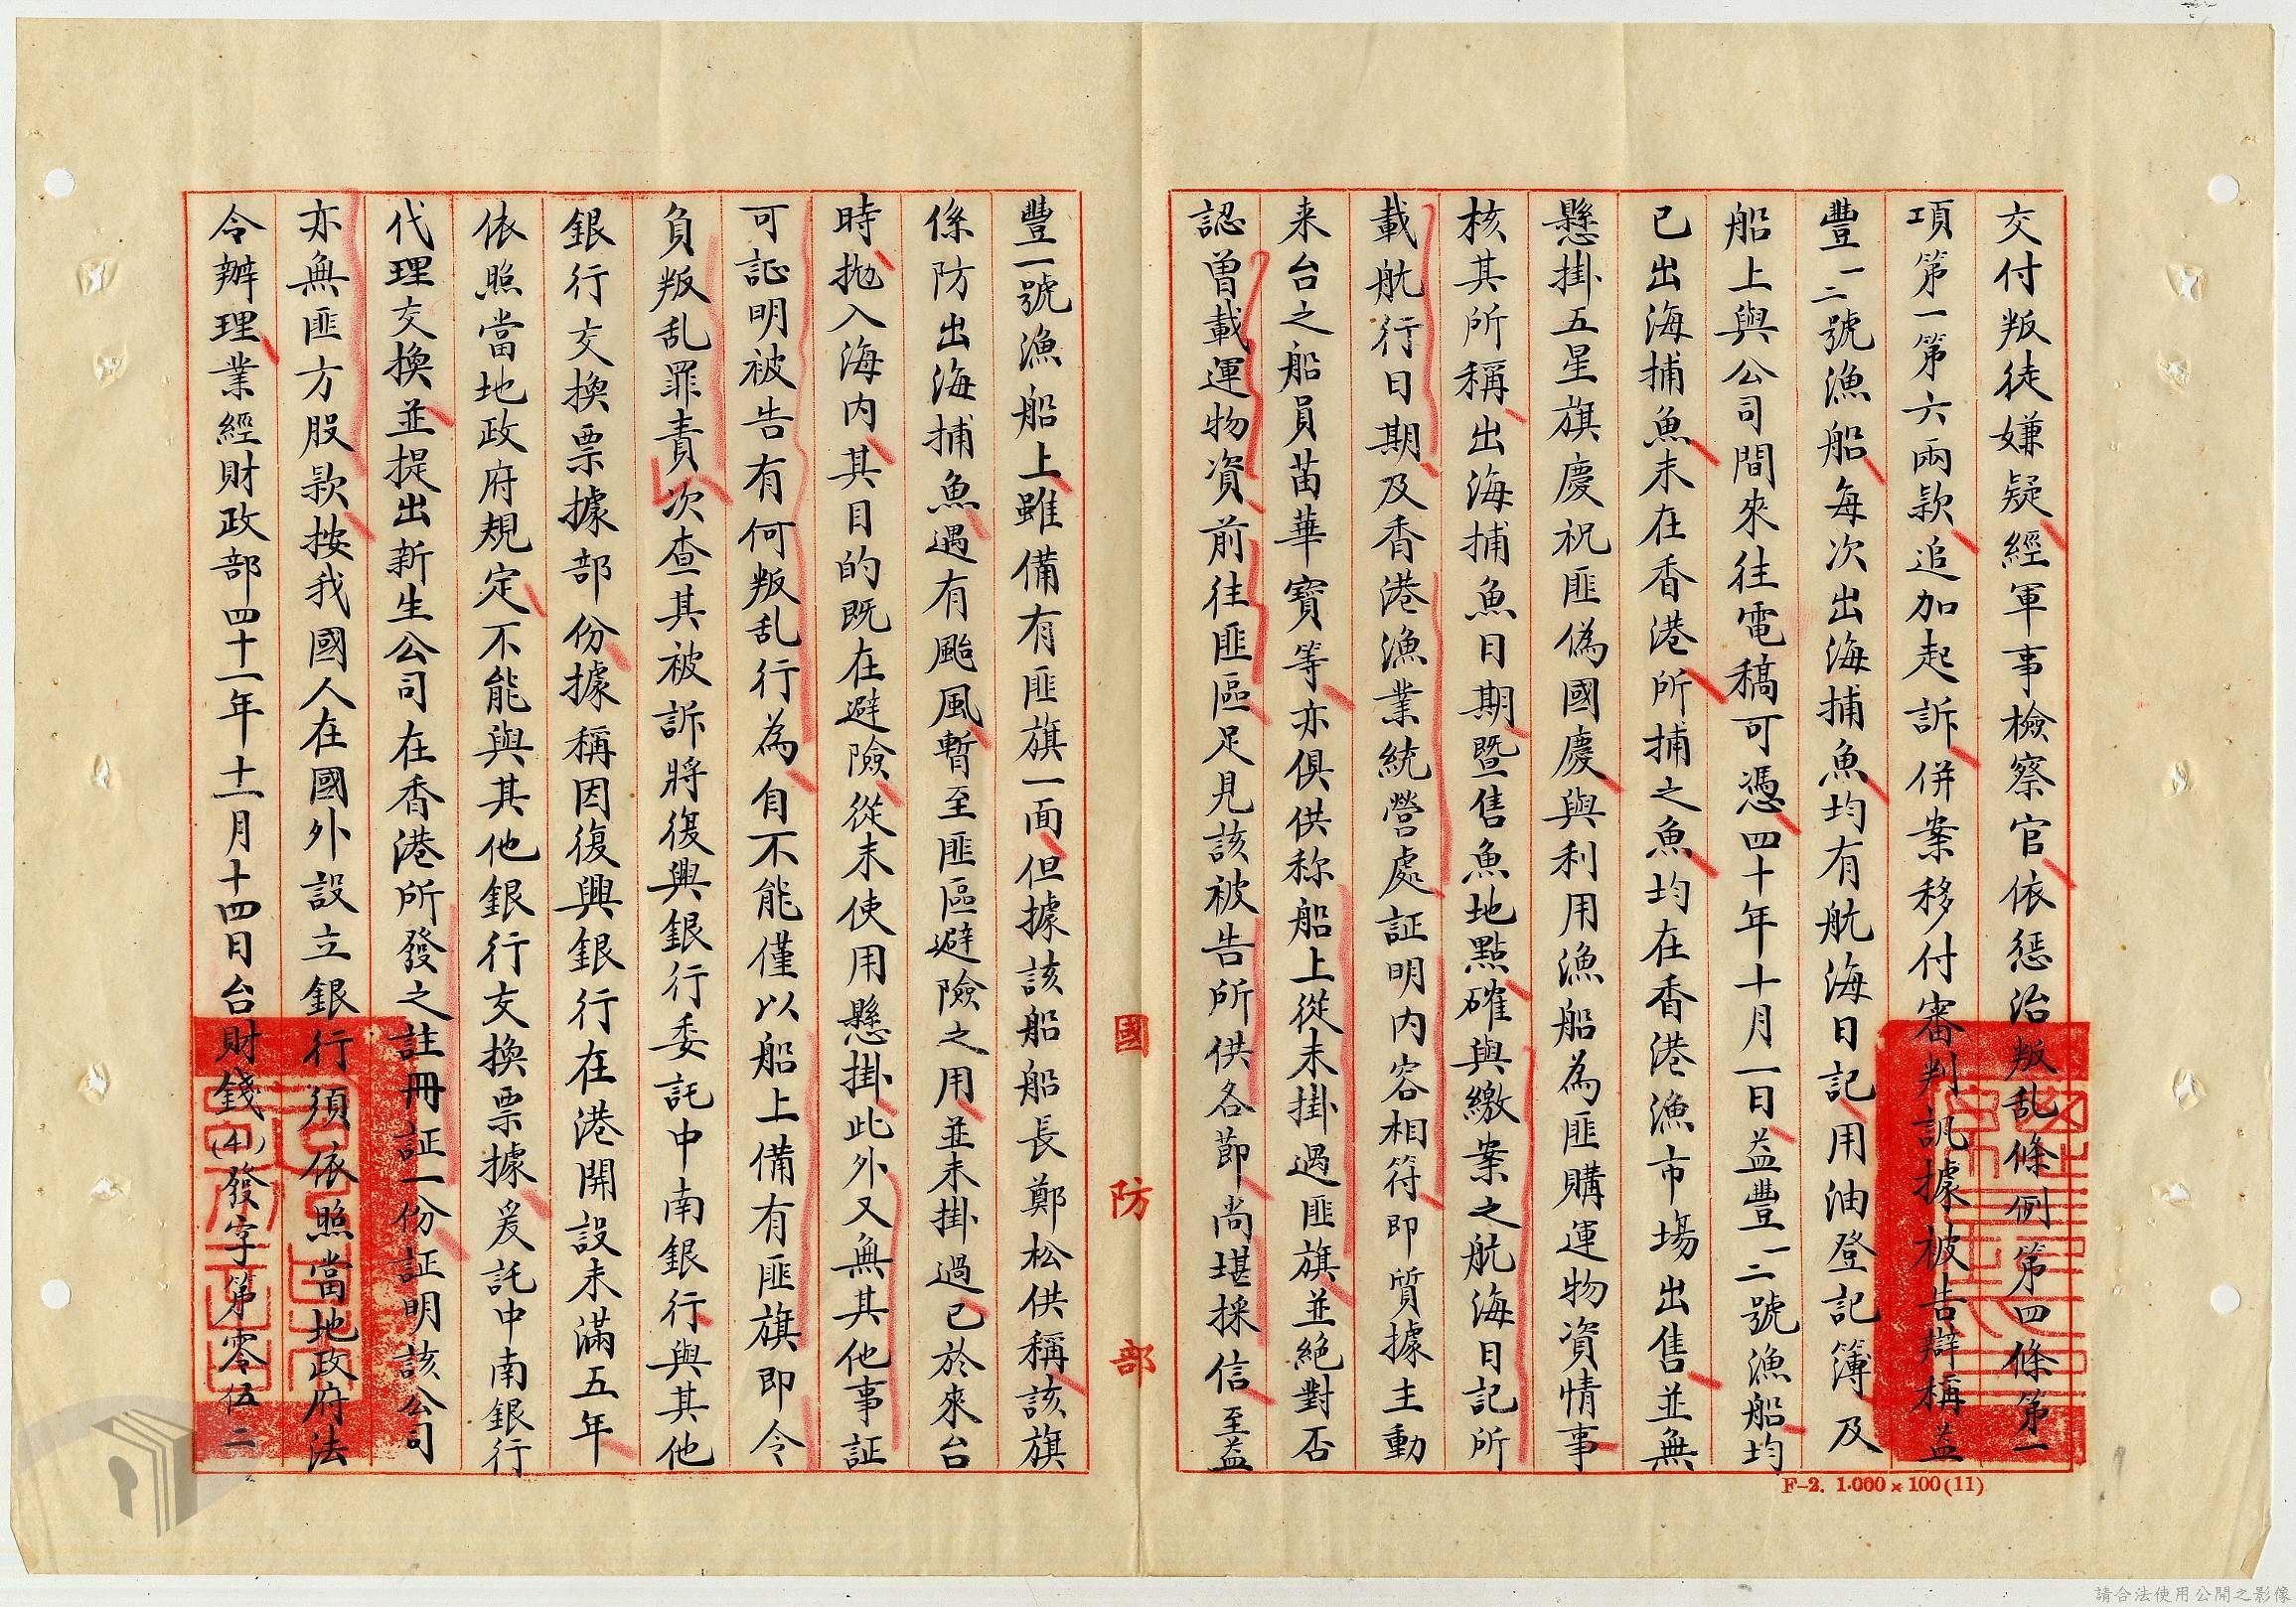 交付叛徒嫌疑經軍事檢察官依惩治叛乱條例第四條第一
項第一第六兩款追加起訴併案移付審判訊據被告辯稱益
豐一二號漁船每次出海捕魚均有航海日記用油登記簿及
船上與公司間來往電稿可憑四十年十月一日益豐一二號漁船均
已出海捕魚未在香港所捕之魚均在香港漁市場出售並無
懸掛五星旗慶祝匪偽國慶與利用漁船為匪購運物資情事
核其所稱出海捕魚日期暨售魚地點確與繳案之航海日記所
載航行日期及香港漁業統營處証明內容相符即質據主動
来台之船員苗華寶等亦俱供称船上從未掛過匪旗並絕對否
認曾載運物資前往匪區足見該被告所供各節尚堪採信至益
豐一號漁船上雖備有匪旗一面但據該船船長鄭松供稱該旗
係防出海捕魚遇有颱風暫至匪區避險之用並未掛過已於來台
時拋入海內其目的既在避險從未使用懸掛此外又無其他事証
可証明被告有何叛乱行為自不能僅以船上備有匪旗即令
負叛乱罪責次查其被訴將復興銀行委託中南銀行與其他
銀行交換票據部份據稱因復興銀行在港開設未滿五年
依照當地政府規定不能與其他銀行交換票據爰託中南銀行
代理交換並提出新生公司在香港所發之註冊証一份証明該公司
亦無匪方股款按我國人在國外設立銀行須依照當地政府法
令辦理業經財政部四十一年十一月十四日台財錢(41)發字第零伍二
國防部
F-2. 1.000×100(11)
請合法使用公開之影像